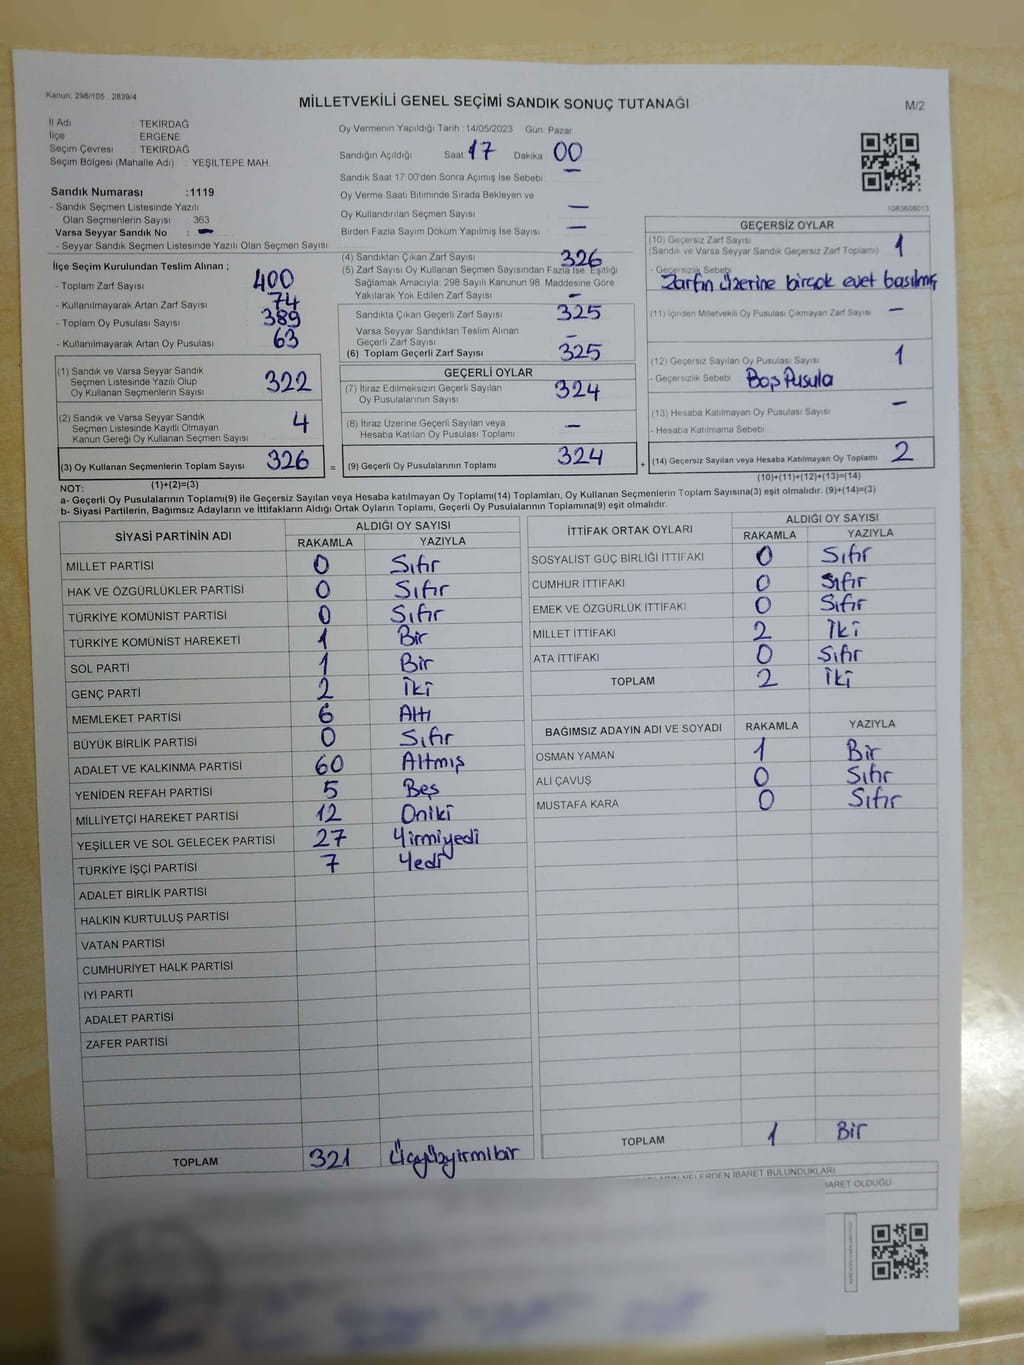 Kanun: 298/105 , 2839/4
MİLLETVEKİLİ GENEL SEÇİMİ SANDIK SONUÇ TUTANAĞI
M/2
İl Adı : TEKİRDAĞ
İlçe : ERGENE
Seçim Çevresi : TEKİRDAĞ
Seçim Bölgesi (Mahalle Adı) : YEŞİLTEPE MAH.
Sandık Numarası :1119
- Sandık Seçmen Listesinde Yazılı
Olan Seçmenlerin Sayısı : 363
Varsa Seyyar Sandık No : -
- Seyyar Sandık Seçmen Listesinde Yazılı Olan Seçmen Sayısı :
Oy Vermenin Yapıldığı Tarih : 14/05/2023 Gün: Pazar
Sandığın Açıldığı Saat 17 Dakika 00
Sandık Saat 17:00'den Sonra Açımış İse Sebebi : -
Oy Verme Saati Bitiminde Sırada Bekleyen ve
Oy Kullandırılan Seçmen Sayısı : -
Birden Fazla Sayım Döküm Yapılmış İse Sayısı : -
1083606013
İlçe Seçim Kurulundan Teslim Alınan ;
- Toplam Zarf Sayısı : 400
- Kullanılmayarak Artan Zarf Sayısı : 74
- Toplam Oy Pusulası Sayısı : 389
- Kullanılmayarak Artan Oy Pusulası : 63
(1) Sandık ve Varsa Seyyar Sandık
Seçmen Listesinde Yazılı Olup
Oy Kullanan Seçmenlerin Sayısı 322
(2) Sandık ve Varsa Seyyar Sandık
Seçmen Listesinde Kayıtlı Olmayan
Kanun Gereği Oy Kullanan Seçmen Sayısı 4
(3) Oy Kullanan Seçmenlerin Toplam Sayısı 326 =
(1)+(2)=(3)
(4) Sandıktan Çıkan Zarf Sayısı : 326
(5) Zarf Sayısı Oy Kullanan Seçmen Sayısından Fazla İse, Eşitliği
Sağlamak Amacıyla, 298 Sayılı Kanunun 98. Maddesine Göre
Yakılarak Yok Edilen Zarf Sayısı : -
Sandıkta Çıkan Geçerli Zarf Sayısı : 325
Varsa Seyyar Sandıktan Teslim Alınan
Geçerli Zarf Sayısı : -
(6) Toplam Geçerli Zarf Sayısı : 325
GEÇERLİ OYLAR
(7) İtiraz Edilmeksizin Geçerli Sayılan
Oy Pusulalarının Sayısı : 324
(8) İtiraz Üzerine Geçerli Sayılan veya
Hesaba Katılan Oy Pusulası Toplamı : -
(9) Geçerli Oy Pusulalarının Toplamı : 324 +
GEÇERSİZ OYLAR
(10) Geçersiz Zarf Sayısı : 1
(Sandık ve Varsa Seyyar Sandık Geçersiz Zarf Toplamı)
- Geçersizlik Sebebi
Zarfın üzerine birçok evet basılmış
(11) İçinden Milletvekili Oy Pusulası Çıkmayan Zarf Sayısı : -
(12) Geçersiz Sayılan Oy Pusulası Sayısı : 1
- Geçersizlik Sebebi : Boş Pusula
(13) Hesaba Katılmayan Oy Pusulası Sayısı : -
- Hesaba Katılmama Sebebi :
(14) Geçersiz Sayılan veya Hesaba Katılmayan Oy Toplamı : 2
(10)+(11)+(12)+(13)=(14)
NOT:
a- Geçerli Oy Pusulalarının Toplamı(9) ile Geçersiz Sayılan veya Hesaba katılmayan Oy Toplamı(14) Toplamları, Oy Kullanan Seçmenlerin Toplam Sayısına(3) eşit olmalıdır. (9)+(14)=(3)
b- Siyasi Partilerin, Bağımsız Adayların ve İttifakların Aldığı Ortak Oyların Toplamı, Geçerli Oy Pusulalarının Toplamına(9) eşit olmalıdır.
SİYASİ PARTİNİN ADI
ALDIĞI OY SAYISI
RAKAMLA YAZIYLA
MİLLET PARTİSİ 0 Sıfır
HAK VE ÖZGÜRLÜKLER PARTİSİ 0 Sıfır
TÜRKİYE KOMÜNİST PARTİSİ 0 Sıfır
TÜRKİYE KOMÜNİST HAREKETİ 1 Bir
SOL PARTİ 1 Bir
GENÇ PARTİ 2 İki
MEMLEKET PARTİSİ 6 Altı
BÜYÜK BİRLİK PARTİSİ 0 Sıfır
ADALET VE KALKINMA PARTİSİ 60 Altmış
YENİDEN REFAH PARTİSİ 5 Beş
MİLLİYETÇİ HAREKET PARTİSİ 12 Oniki
YEŞİLLER VE SOL GELECEK PARTİSİ 27 Yirmiyedi
TÜRKİYE İŞÇİ PARTİSİ 7 Yedi
ADALET BİRLİK PARTİSİ
HALKIN KURTULUŞ PARTİSİ
VATAN PARTİSİ
CUMHURİYET HALK PARTİSİ
İYİ PARTİ
ADALET PARTİSİ
ZAFER PARTİSİ
TOPLAM 321 Üçyüzyirmibir
İTTİFAK ORTAK OYLARI
ALDIĞI OY SAYISI
RAKAMLA YAZIYLA
SOSYALİST GÜÇ BİRLİĞİ İTTİFAKI 0 Sıfır
CUMHUR İTTİFAKI 0 Sıfır
EMEK VE ÖZGÜRLÜK İTTİFAKI 0 Sıfır
MİLLET İTTİFAKI 2 İki
ATA İTTİFAKI 0 Sıfır
TOPLAM 2 İki
BAĞIMSIZ ADAYIN ADI VE SOYADI RAKAMLA YAZIYLA
OSMAN YAMAN 1 Bir
ALİ ÇAVUŞ 0 Sıfır
MUSTAFA KARA 0 Sıfır
TOPLAM 1 Bir
NELERDEN İBARET BULUNDUKLARI
İBARET OLDUĞU